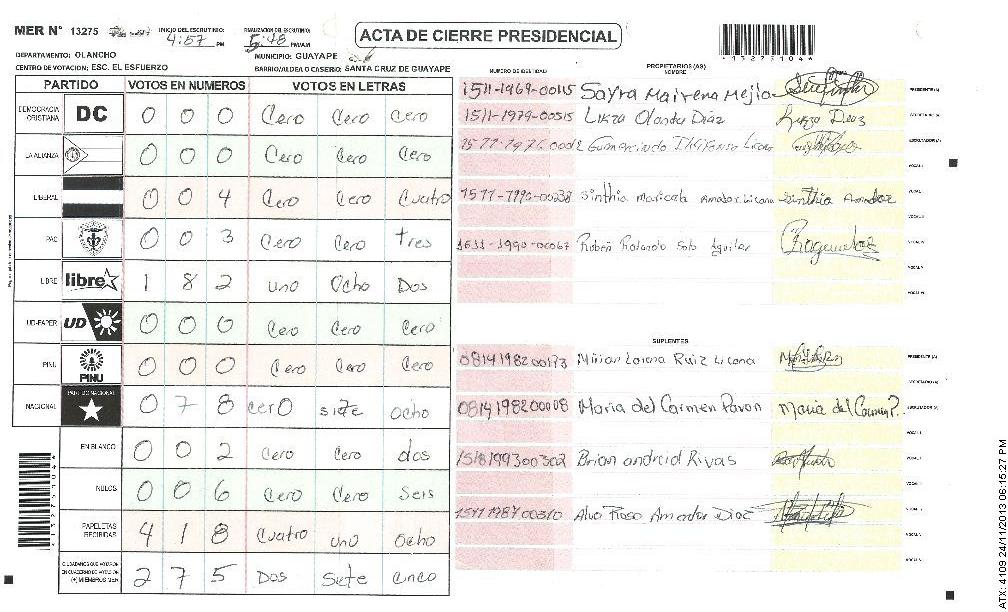 MER N° 13275 INICIO DEL ESCRUTINIO: 4:57 PM FINALIZACION DEL ESCRUTINIO: 5:48 PM/AM ACTA DE CIERRE PRESIDENCIAL
DEPARTAMENTO: OLANCHO MUNICIPIO: GUAYAPE
CENTRO DE VOTACION: ESC. EL ESFUERZO BARRIO/ALDEA O CASERIO: SANTA CRUZ DE GUAYAPE
*13275104*
PARTIDO VOTOS EN NUMEROS VOTOS EN LETRAS
DEMOCRACIA CRISTIANA DC 0 0 0 Cero Cero cero
LA ALIANZA 0 0 0 Cero Cero Cero
LIBERAL 0 0 4 Cero Cero Cuatro
PAC 0 0 3 Cero Cero tres
LIBRE libre 1 8 2 uno Ocho Dos
UD-FAPER UD 0 0 0 Cero Cero Cero
PINU PINU 0 0 0 Cero Cero Cero
NACIONAL PARTIDO NACIONAL 0 7 8 cero siete ocho
EN BLANCO 0 0 2 Cero Cero dos
NULOS 0 0 6 Cero Cero Seis
PAPELETAS RECIBIDAS 4 1 8 Cuatro uno Ocho
CIUDADANOS QUE VOTARON EN CUADERNO DE VOTACION (+) MIEMBROS MER 2 7 5 Dos Siete cinco
PROPIETARIOS (AS)
NUMERO DE IDENTIDAD NOMBRE
1511-1969-00115 Sayra Mairena Mejia PRESIDENTE (A)
1511-1979-00515 Lizza Olanda Diaz Lizza Diaz SECRETARIO (A)
Gumercindo ESCRUTADOR (A)
VOCAL I
1511-1990-00238 Sinthia Maricela Amador Licona Sinthia Amador VOCAL II
VOCAL III
1511-1990-00067 Ruben Rolando Soto Aguilar VOCAL IV
VOCAL V
VOCAL VI
SUPLENTES
0814198200173 Mirian Lorena Ruiz Licona PRESIDENTE (A)
SECRETARIO (A)
0814198200008 Maria del Carmen Pavon Maria del Carmen P. ESCRUTADOR (A)
VOCAL I
1518199300302 Brian andreid Rivas VOCAL II
VOCAL III
1511198700310 Alva Rosa Amador Diaz VOCAL IV
VOCAL V
VOCAL VI
*13275104*
ATX: 4109 24/11/2013 06:15:27 PM